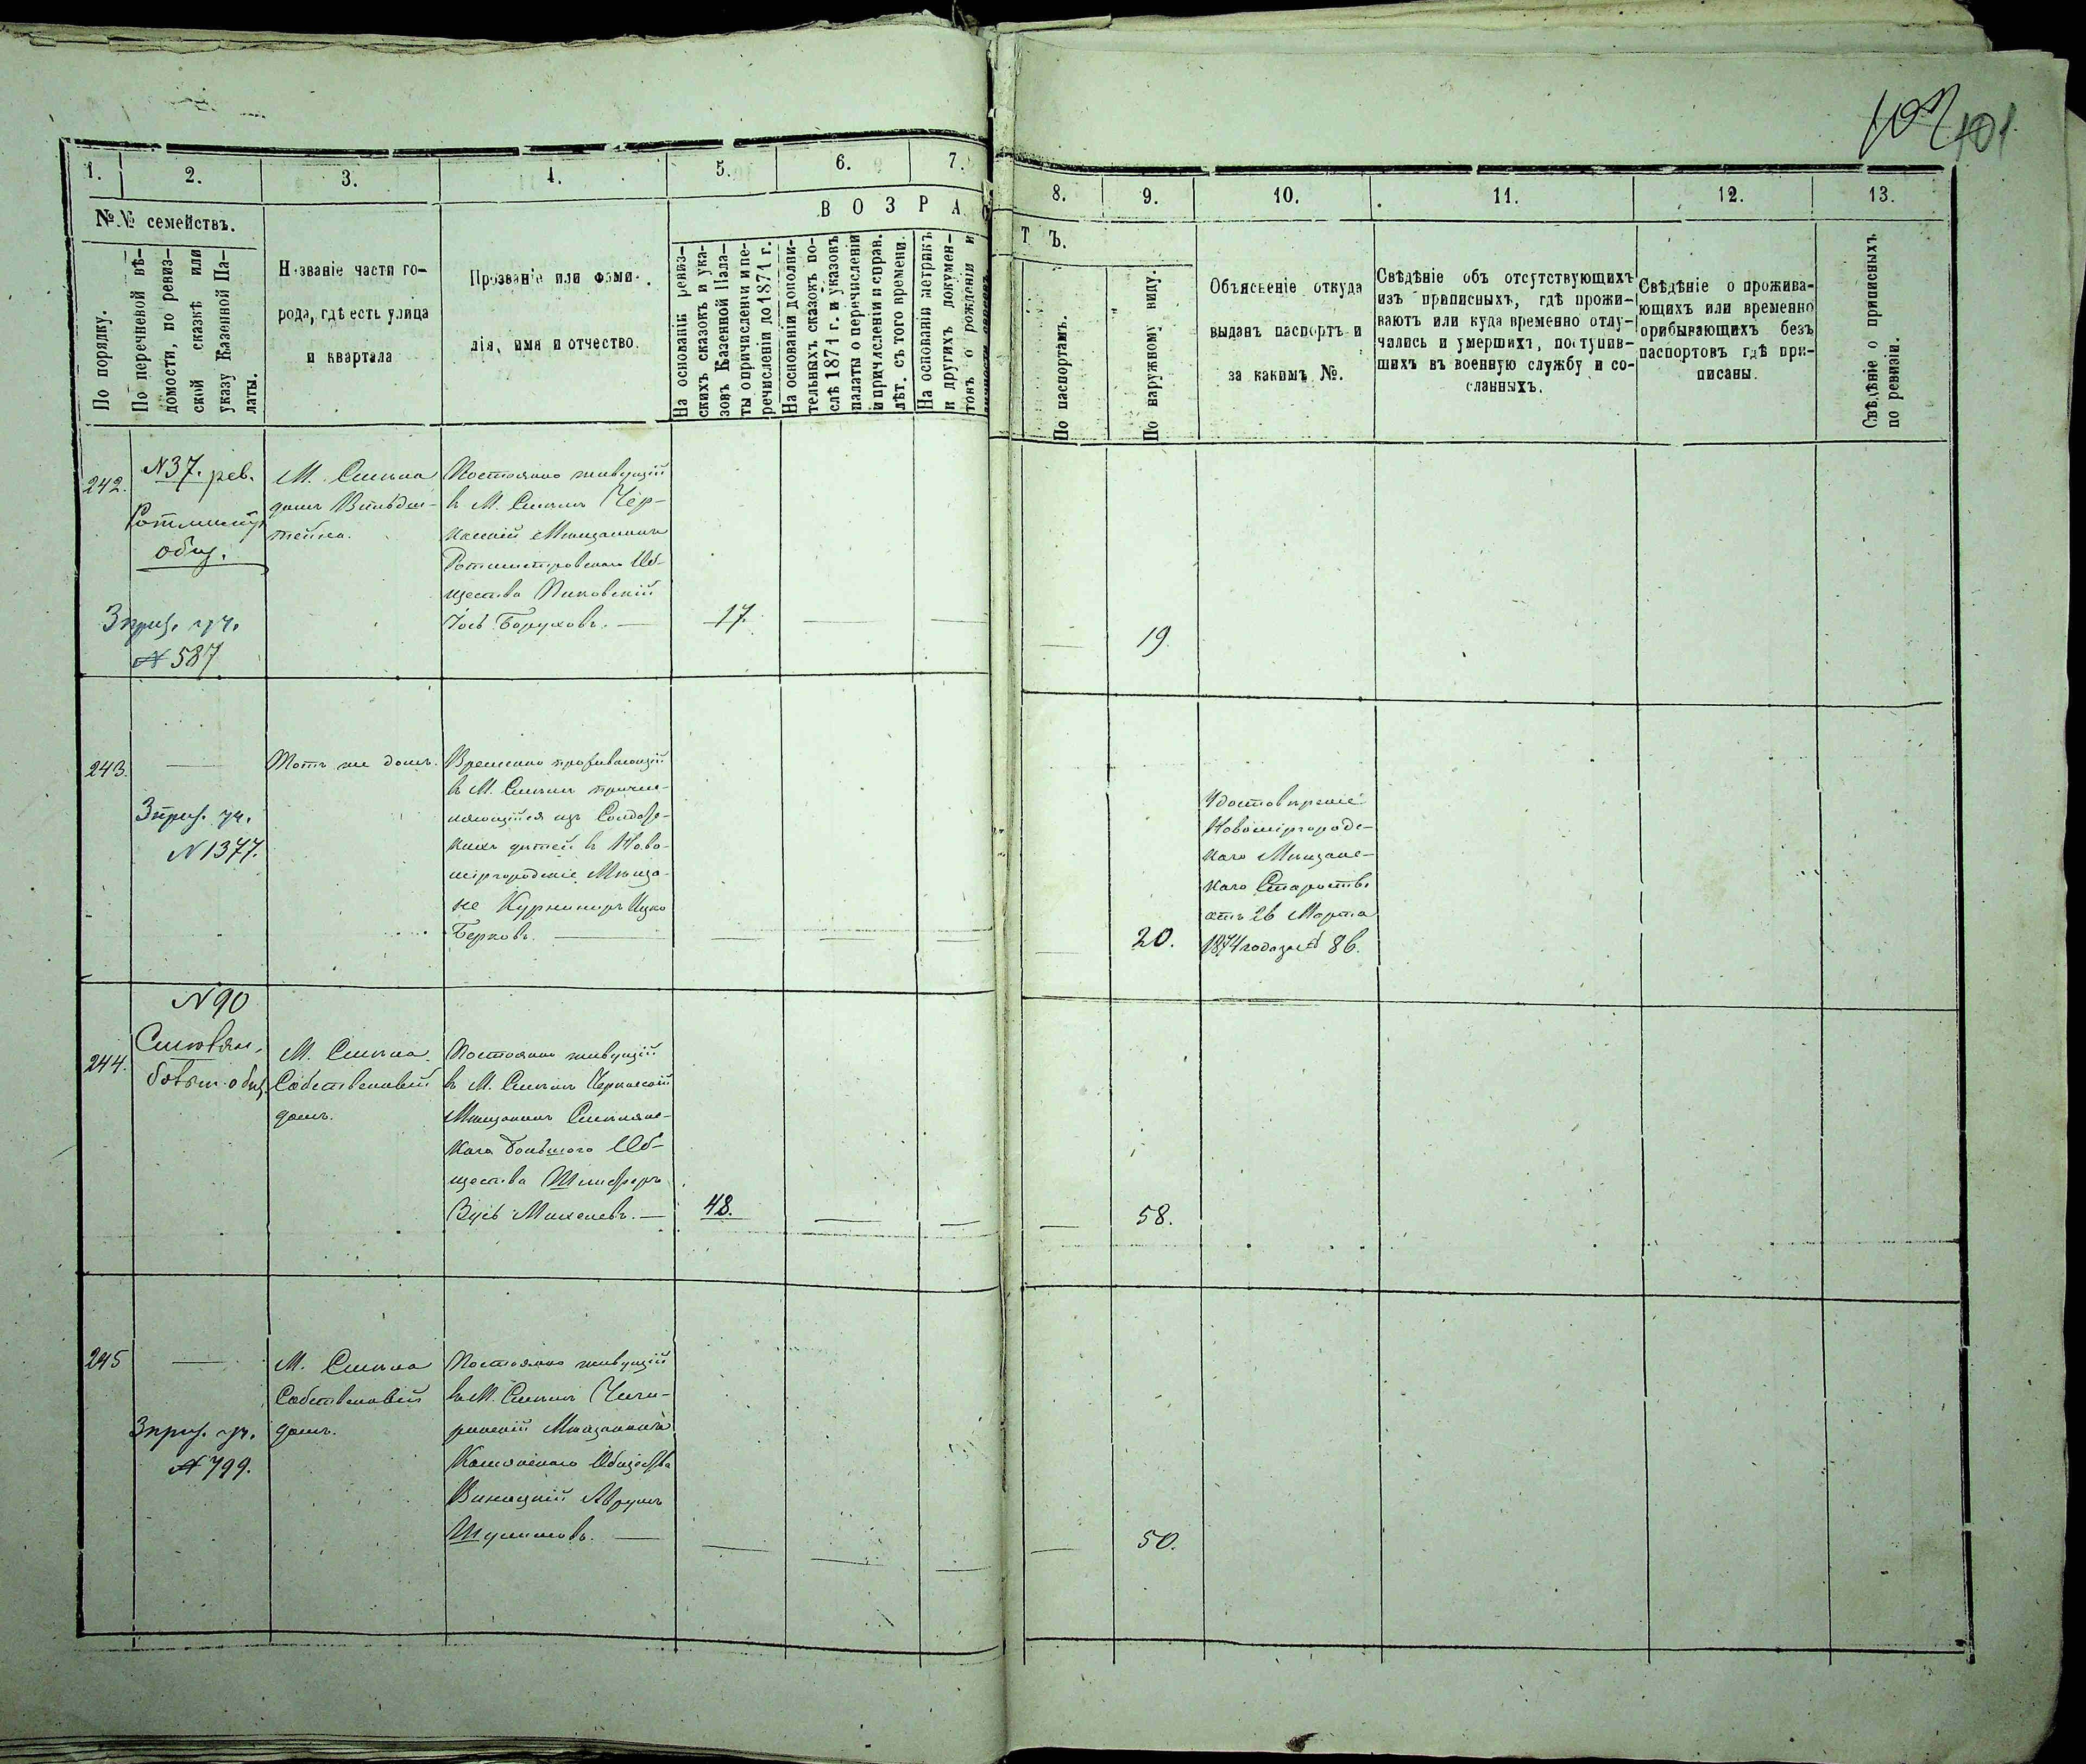 102 101
1. 2. 3. 4. 5. 6. 7. 8. 9. 10. 11. 12. 13.
№№ семействъ.
По порядку.
По перечневой вѣ-
домости, по ревиз-
ской сказкѣ или
указу Казенной Па-
латы.
Названіе части го-
рода, гдѣ есть улица
и квартала
Прозваніе или фами-
лія, имя и отчество.
ВОЗРАСТЪ.
На основаніи ревиз-
скихъ сказокъ и ука-
зовъ Казенной Пала-
ты о причисленіи и пе-
речисленіи до 1871 г.
На основаніи дополни-
тельныхъ сказокъ по-
слѣ 1871 г. и указовъ
палаты о перечисленіи
и причисленіи и справ.
лѣт. съ того времени.
На основаніи метрикъ
и другихъ докумен-
товъ о рожденіи и
По паспортамъ.
По наружному виду.
Объясненіе откуда
выданъ паспортъ и
за какимъ №.
Свѣдѣніе объ отсутствующихъ
изъ приписныхъ, гдѣ прожи-
ваютъ или куда временно отлу-
чались и умершихъ, поступив-
шихъ въ военную службу и со-
сланныхъ.
Свѣдѣніе о прожива-
ющихъ или временно
прибывающихъ безъ
паспортовъ гдѣ при-
писаны.
Свѣдѣніе о приписныхъ
по ревизіи.
242.
N37. рев.
Ротмистр
общ.
3 приз. уч.
N 587
М. Смѣла
домъ
Постоянно живущій
в М. Смѣлѣ Чер-
каскій Мѣщанинъ
Ротмистровскаго Об-
щества
Іось Боруховъ. —
17.
19.
243.
3 приз. уч.
N 1377.
Тотъ же домъ.
Временно проживающій
в М. Смѣлѣ причис-
ляющійся изъ Солдатс-
кихъ дѣтей в Ново-
миргородскіе Мѣща-
не Куршниръ Ицко
Берковъ. —
20.
Удостовѣреніе
Новомиргородс-
каго Мѣщанс-
каго Старосты
отъ 26 Марта
1874 года за N 86.
244.
N 90
Смѣлян.
больш. общ.
М. Смѣла
Собственный
домъ.
Постоянно живущій
в М. Смѣлѣ Черкаскій
Мѣщанинъ Смѣлянс-
каго большого Об-
щества
48.
58.
245
3 приз. уч.
N 799.
М. Смѣла
Собственный
домъ.
Постоянно живущій
в М. Смѣлѣ Чиги-
ринскій Мѣщанинъ
Каменскаго Общества
Виницкій Аврумъ
50.